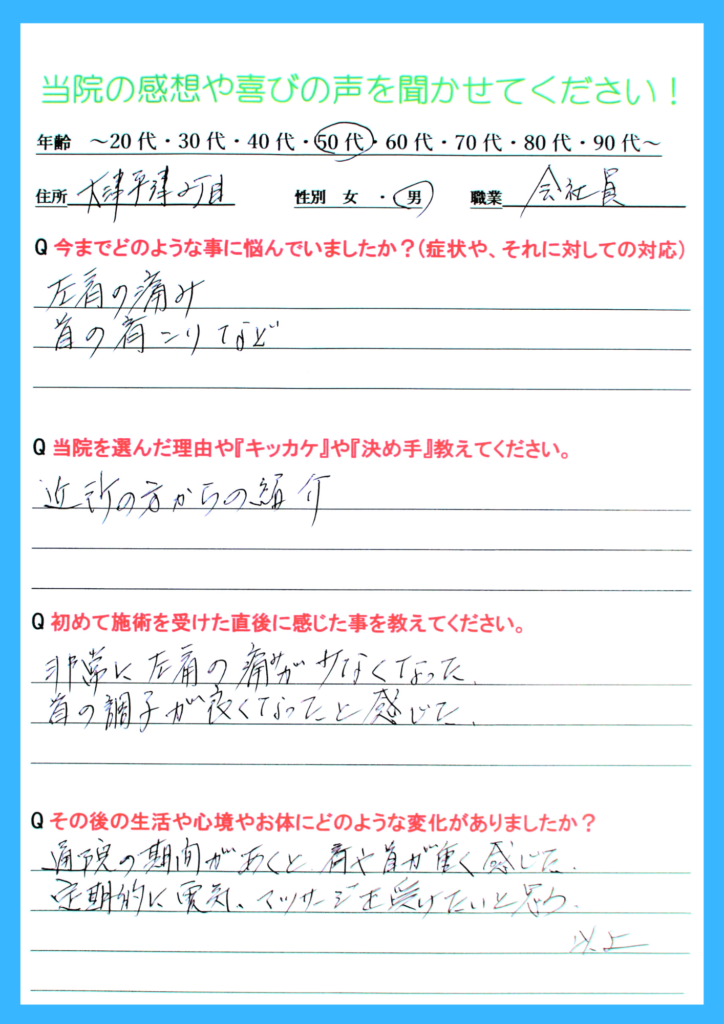 当院の感想や喜びの声を聞かせてください！
年齢 ～20代・30代・40代・50代・60代・70代・80代・90代～
住所 大津平津2丁目 性別 女 ・ 男 職業 会社員
Q 今までどのような事に悩んでいましたか？(症状や、それに対しての対応)
左肩の痛み
首の肩こりなど
Q 当院を選んだ理由や『キッカケ』や『決め手』教えてください。
近所の方からの紹介
Q 初めて施術を受けた直後に感じた事を教えてください。
非常に左肩の痛みが少なくなった.
首の調子が良くなったと感じた.
Q その後の生活や心境やお体にどのような変化がありましたか？
通院の期間があくと肩や首が重く感じた.
定期的に電気、マッサージを受けたいと思う.
以上